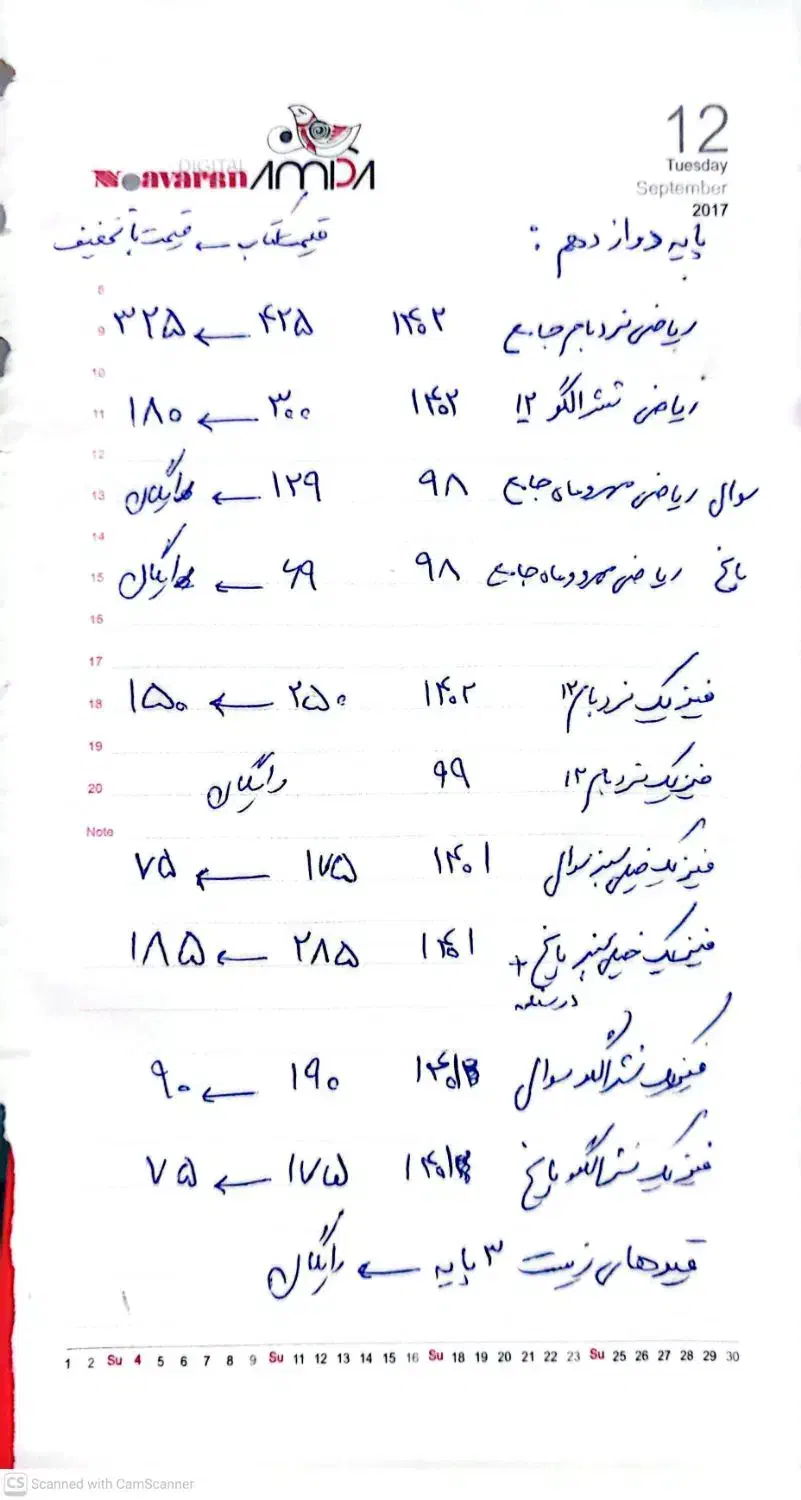 DIGITAL
Noavaran AMDA
12
Tuesday
September
2017
پایه دوازدهم :
قیمت کتاب ← قیمت با تخفیف
8
9 ریاضی نردبام جامع ۱۴۰۲ ۴۲۵ ← ۳۲۵
10
11 ریاضی نشر الگو ۱۲ ۱۴۰۲ ۳۰۰ ← ۱۸۰
12
13 سوال ریاضی مهروماه جامع ۹۸ ۱۲۹ ← رایگان
14
15 پاسخ ریاضی مهروماه جامع ۹۸ ۶۹ ← رایگان
16
17
18 فیزیک نردبام ۱۲ ۱۴۰۲ ۲۵۰ ← ۱۵۰
19
20 فیزیک نردبام ۱۲ ۹۹ رایگان
Note
فیزیک خیلی سبز سوال ۱۴۰۱ ۱۷۵ ← ۷۵
فیزیک خیلی سبز پاسخ + ۱۴۰۱ ۲۸۵ ← ۱۸۵
درسنامه
فیزیک نشر الگو سوال ۱۴۰۱ ۱۹۰ ← ۹۰
فیزیک نشر الگو پاسخ ۱۴۰۱ ۱۷۵ ← ۷۵
قیدهای زیست ۳ پایه ← رایگان
1 2 Su 4 5 6 7 8 9 Su 11 12 13 14 15 16 Su 18 19 20 21 22 23 Su 25 26 27 28 29 30
CS Scanned with CamScanner